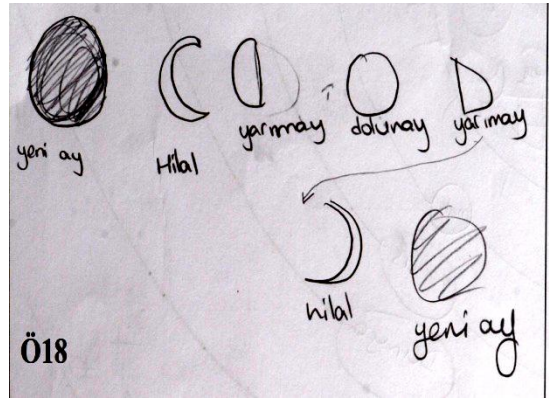 yeni ay
Hilal
yarımay
dolunay
yarımay
hilal
yeni ay
Ö18